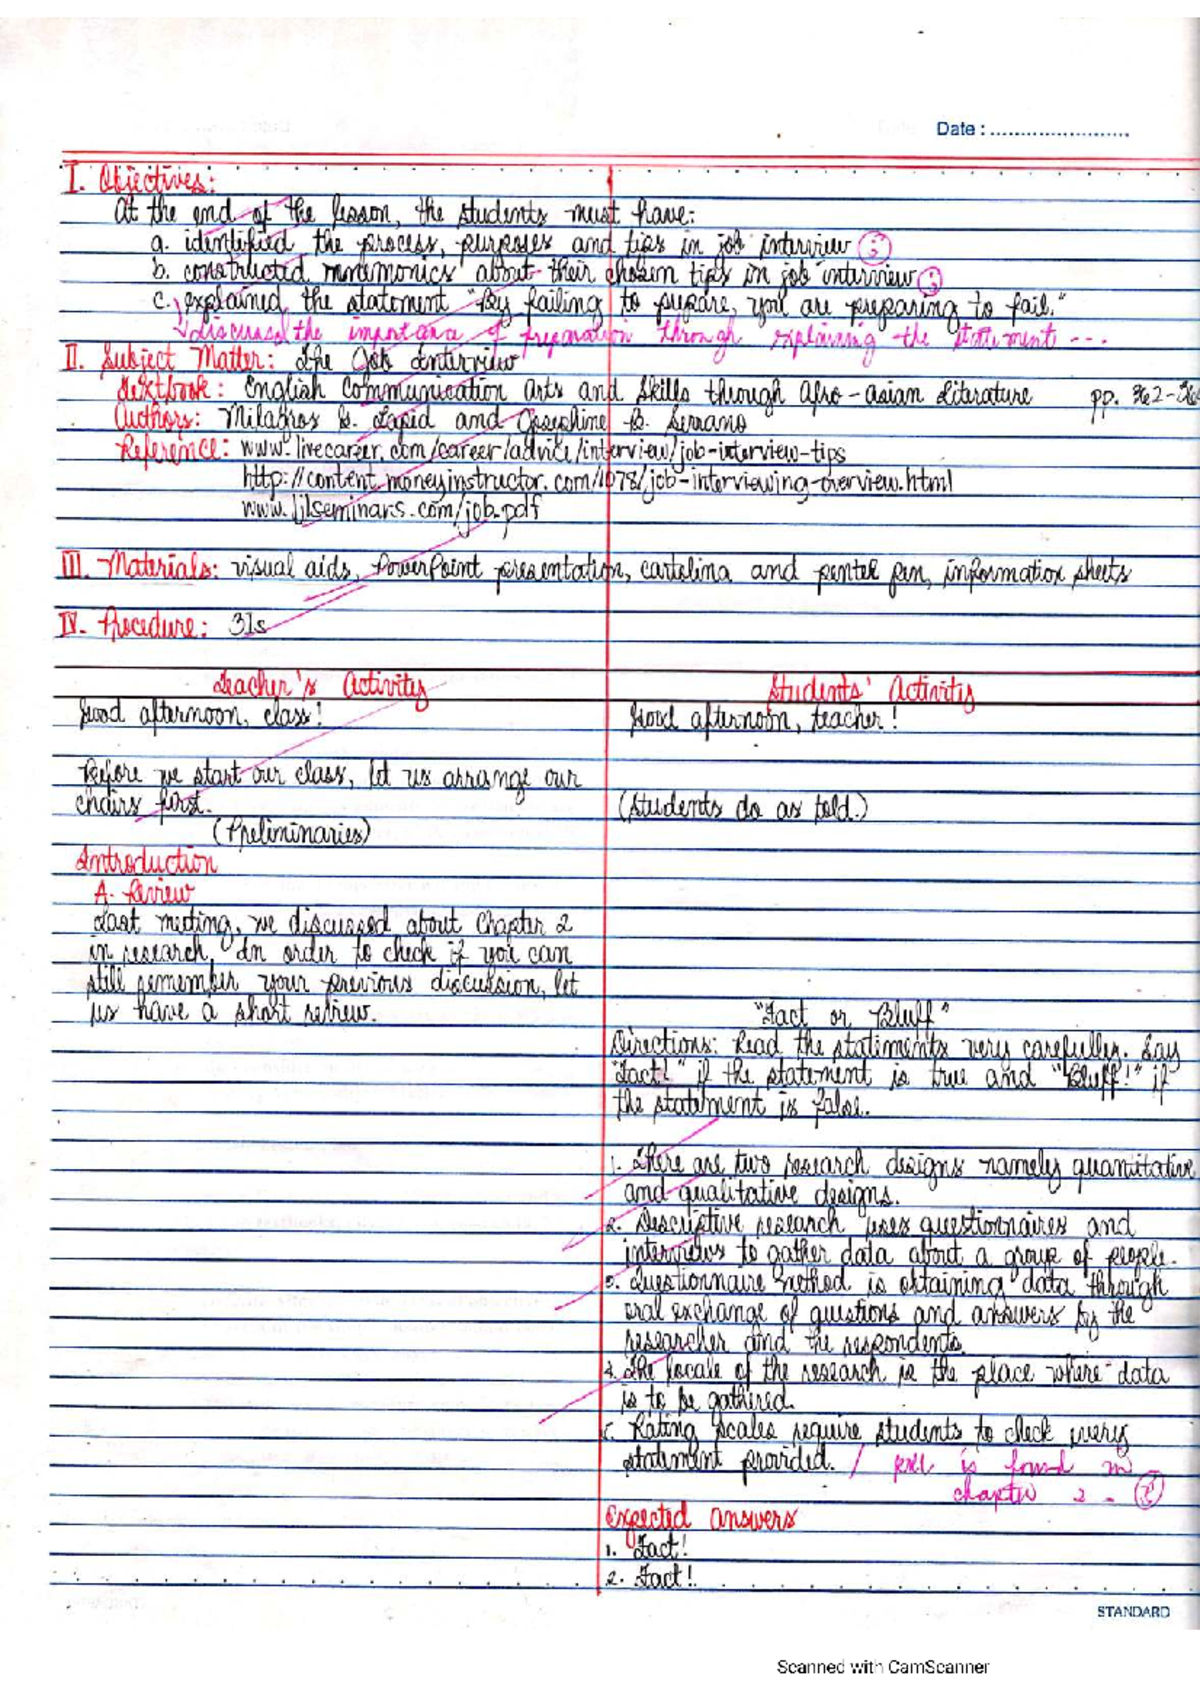 Date : ........................
I. Objectives:
At the end of the lesson, the students must have:
a. identified the process, purposes and tips in job interview ;
b. constructed mnemonics about their chosen tips in job interview ;
c. explained the statement "By failing to prepare, you are preparing to fail."
discussed the importance of preparation through explaining the statement ...
II. Subject Matter: The Job Interview
Textbook: English Communication Arts and Skills through Afro-Asian Literature pp.
Authors: Milagros G. Lapid and Josephine B. Serrano
Reference: www.livecareer.com/career/advice/interview/job-interview-tips
http://content.moneyinstructor.com/1078/job-interviewing-overview.html
www.ljlseminars.com/job.pdf
III. Materials: visual aids, PowerPoint presentation, cartolina and pentel pen, information sheets
IV. Procedure: 3Is
Teacher's Activity
Students' Activity
Good afternoon, class!
Good afternoon, teacher!
Before we start our class, let us arrange our
chairs first.
(Students do as told.)
(Preliminaries)
Introduction
A. Review
Last meeting, we discussed about Chapter 2
in research. In order to check if you can
still remember your previous discussion, let
us have a short review.
"Fact or Bluff"
Directions: Read the statements very carefully. Say
"Fact!" if the statement is true and "Bluff!" if
the statement is false.
1. There are two research designs namely quantitative
and qualitative designs.
2. Descriptive research uses questionnaires and
interviews to gather data about a group of people.
3. Questionnaire method is obtaining data through
oral exchange of questions and answers by the
researcher and the respondents.
4. The locale of the research is the place where data
is to be gathered.
5. Rating Scales require students to check every
statement provided. / is found in
chapter 2 -
Expected Answers
1. Fact!
2. Fact!
STANDARD
Scanned with CamScanner